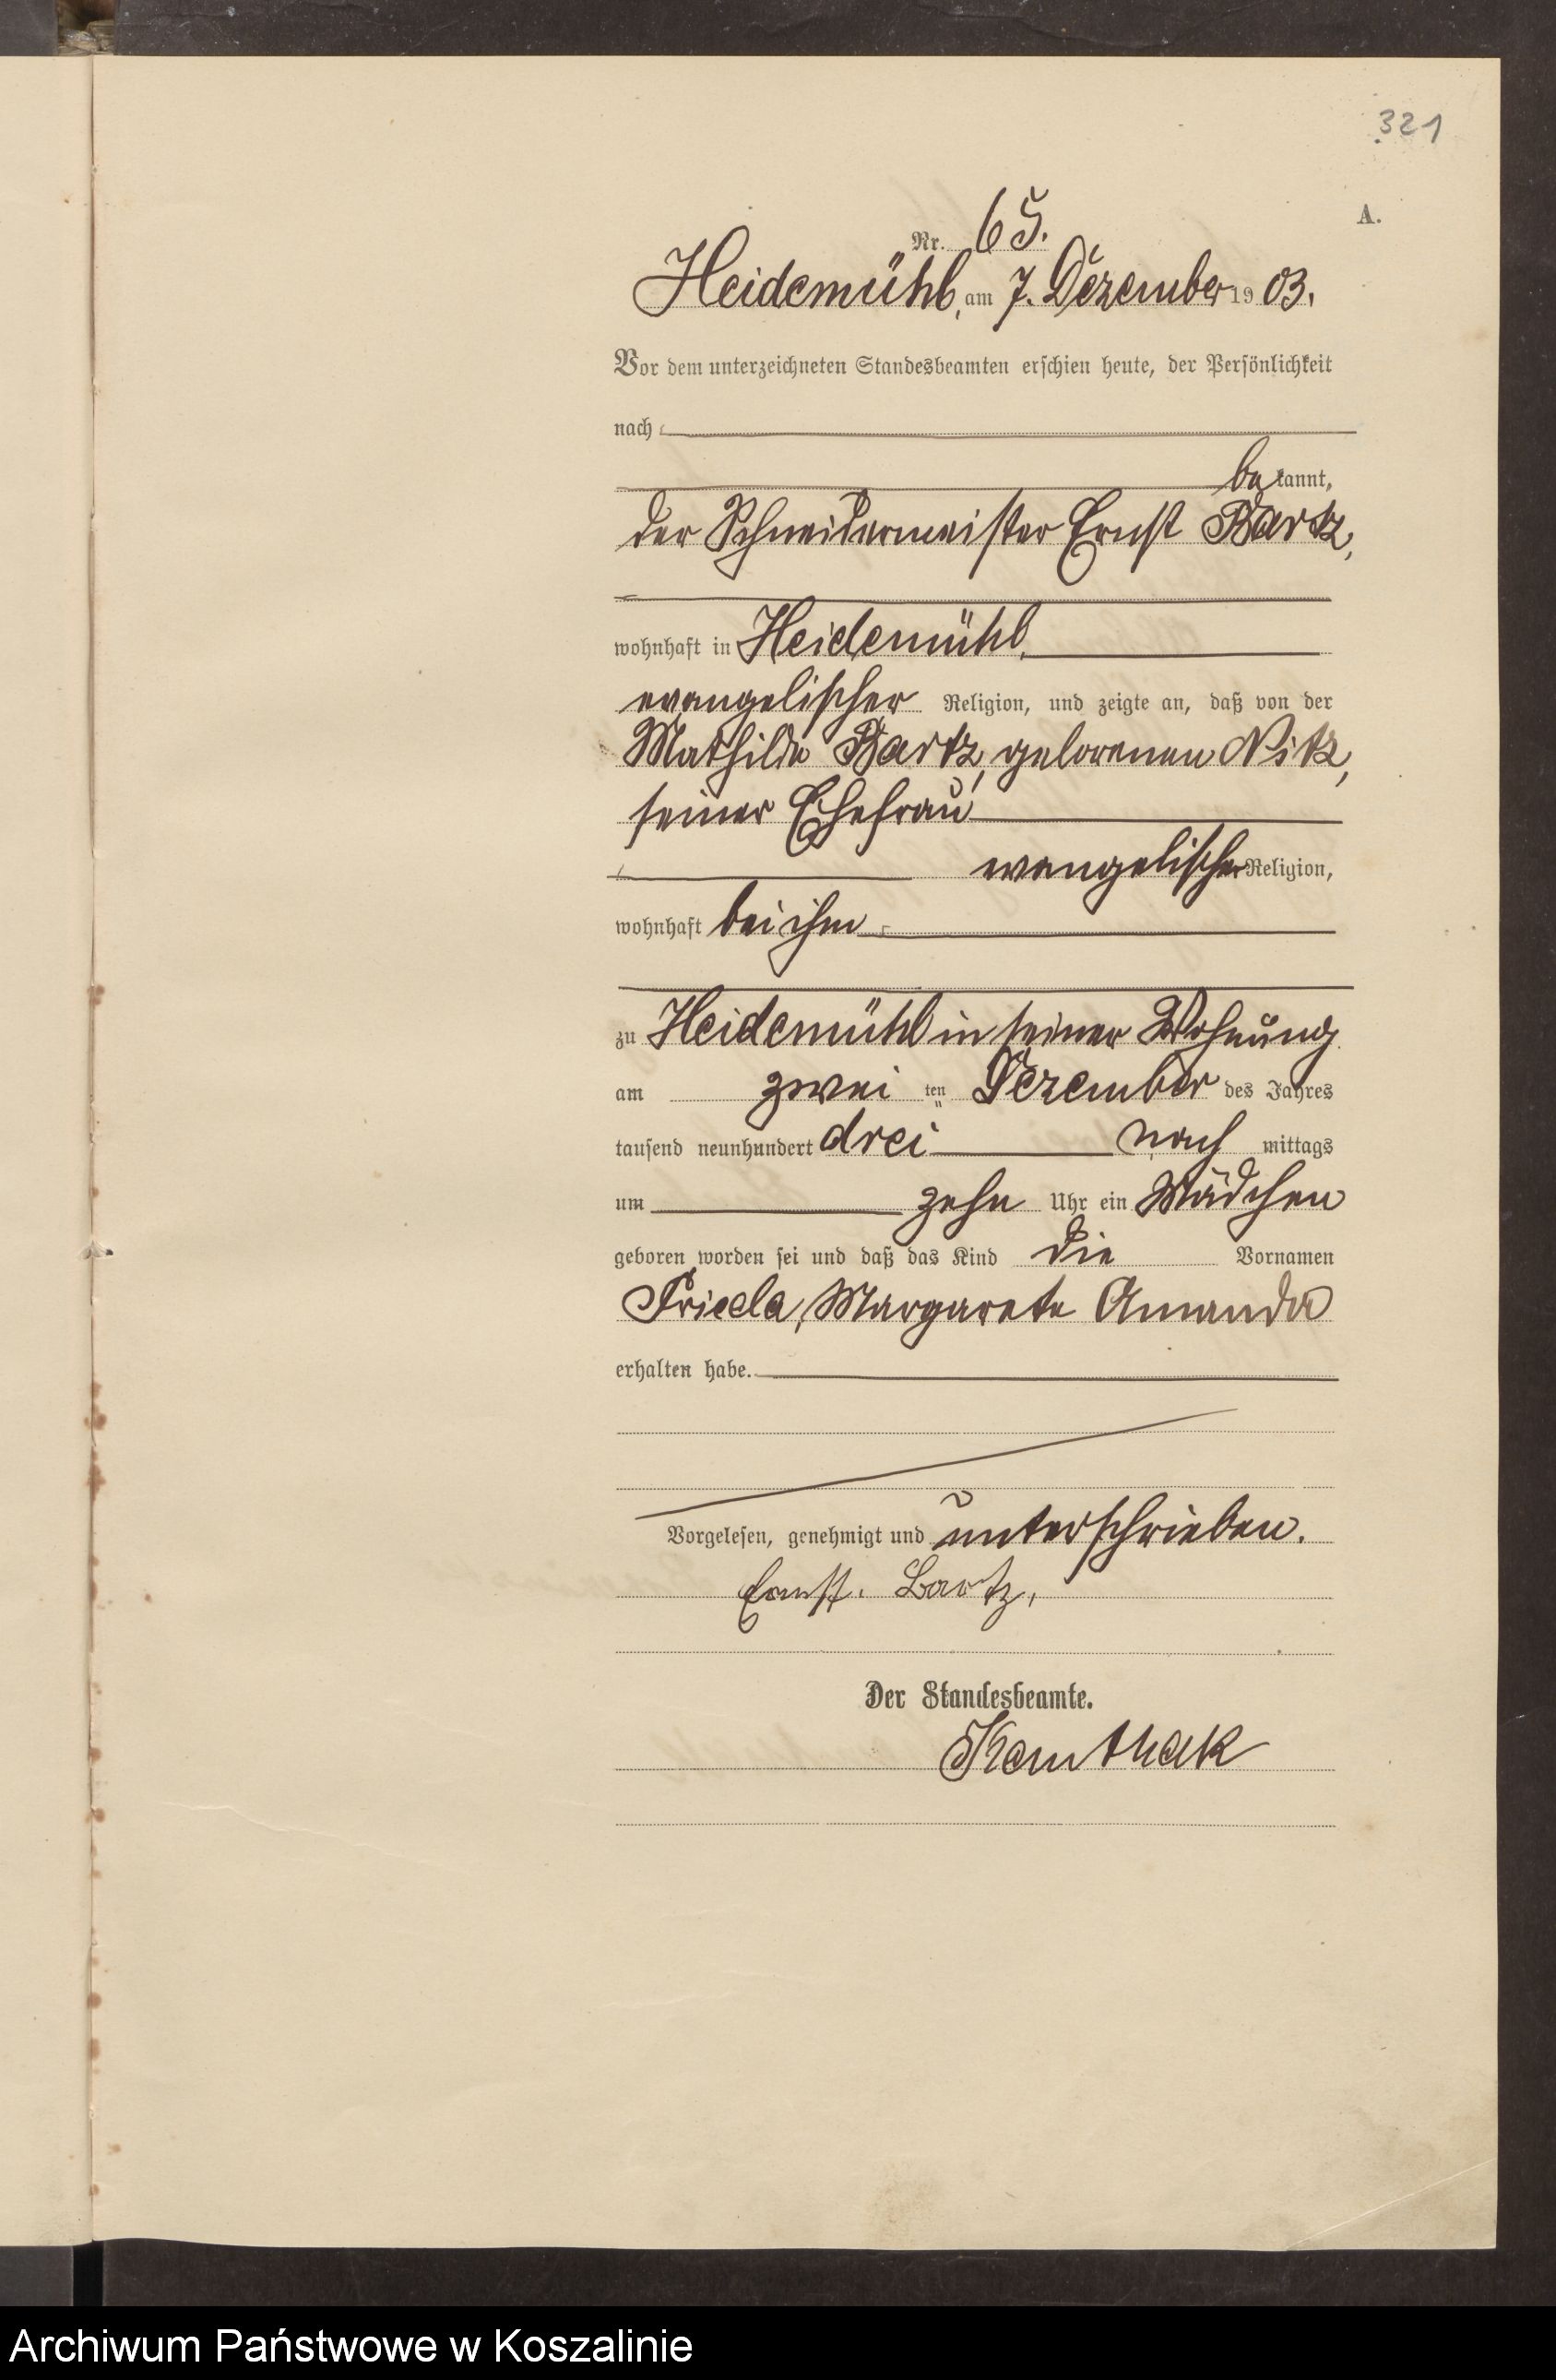 321
A.
Nr. 65.
Heidemühl, am 7. Dezember 1903.
Vor dem unterzeichneten Standesbeamten erschien heute, der Persönlichkeit
nach
be kannt,
der Schneidermeister Ernst Bartz,
wohnhaft in Heidemühl,
evangelischer Religion, und zeigte an, daß von der
Mathilde Bartz, geborenen Nitz,
seiner Ehefrau
evangelischer Religion,
wohnhaft bei ihm
zu Heidemühl in seiner Wohnung
am zwei ten Dezember des Jahres
tausend neunhundert drei nach mittags
um zehn Uhr ein Mädchen
geboren worden sei und daß das Kind die Vornamen
Frieda, Margarete Amanda
erhalten habe.
Vorgelesen, genehmigt und unterschrieben.
Ernst. Bartz,
Der Standesbeamte.
Archiwum Państwowe w Koszalinie